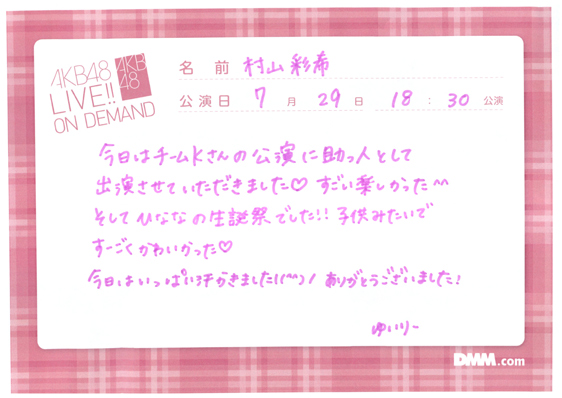 AKB48
LIVE!!
ON DEMAND
AKB
48
名 前 村山彩希
公演日 7 月 29 日 18 : 30 公演
今日はチームKさんの公演に助っ人として
出演させていただきました♡ すごい楽しかった^^
そしてひななの生誕祭でした!! 子供みたいで
すーごくかわいかった♡
今日はいっぱい汗かきました!(^^)/ ありがとうございました!
ゆいりー
DMM.com